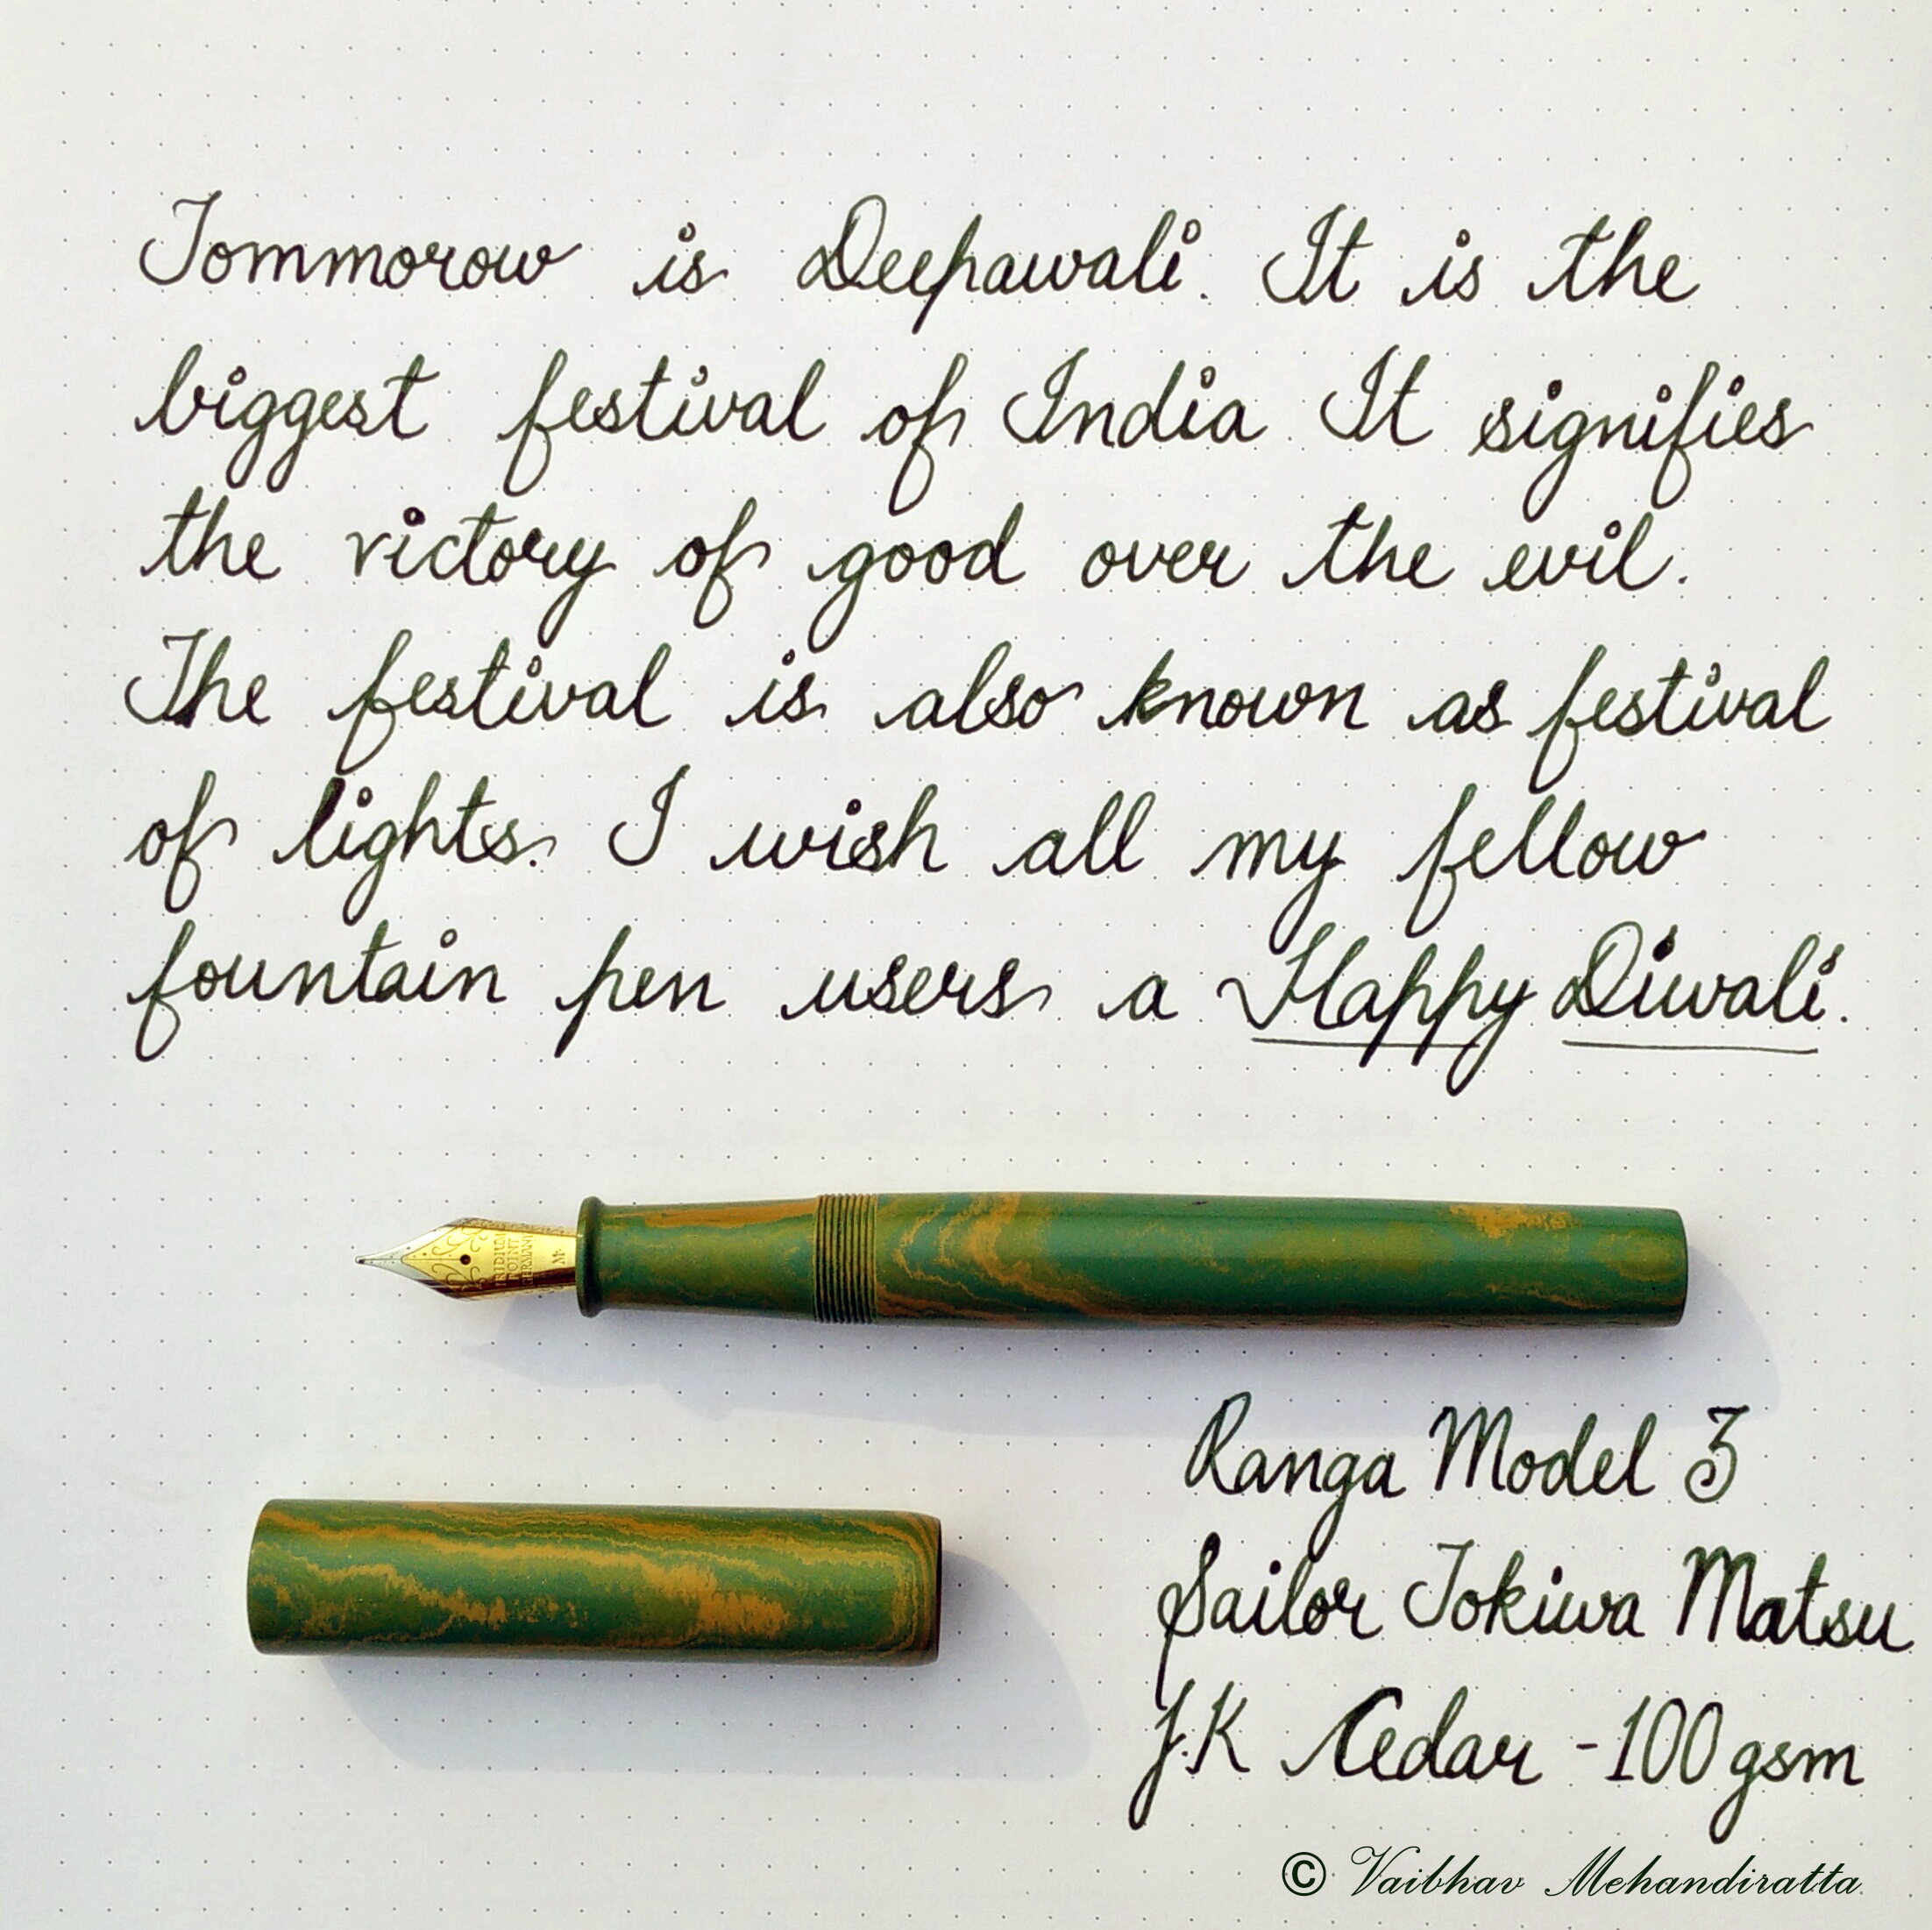 Tommorow is Deepawali. It is the
biggest festival of India It signifies
the victory of good over the evil.
The festival is also known as festival
of lights. I wish all my fellow
fountain pen users a Happy Diwali.
IRIDIUM
POINT
GERMANY
M
Ranga Model 3
Sailor Tokiwa Matsu
J.K Cedar -100 gsm
© Vaibhav Mehandiratta